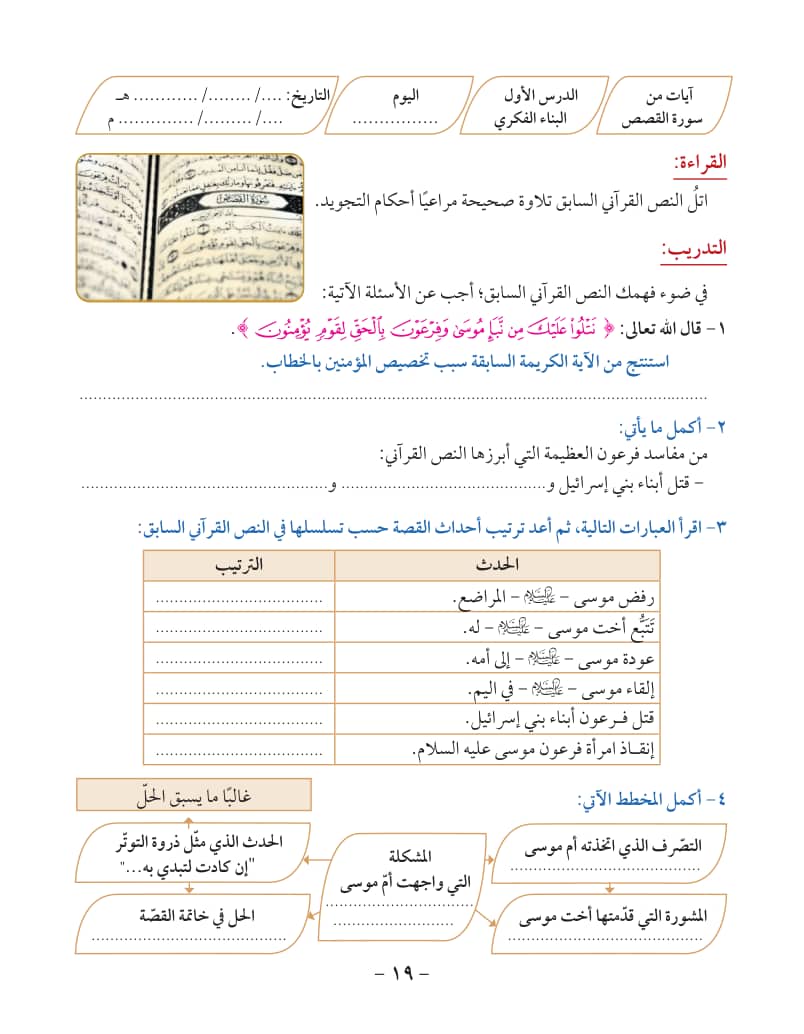 آيات من
سورة القصص
الدرس الأول
البناء الفكري
اليوم
................
التاريخ: ..../ ......../ ............ هـ
..../ ........./ .............. م
القراءة:
اتلُ النص القرآني السابق تلاوة صحيحة مراعيًا أحكام التجويد.
سورة القصص
التدريب:
في ضوء فهمك النص القرآني السابق؛ أجب عن الأسئلة الآتية:
١- قال الله تعالى: ﴿ نَتْلُوا۟ عَلَيْكَ مِن نَّبَإِ مُوسَىٰ وَفِرْعَوْنَ بِٱلْحَقِّ لِقَوْمٍ يُؤْمِنُونَ ﴾.
استنتج من الآية الكريمة السابقة سبب تخصيص المؤمنين بالخطاب.
................................................................................
٢- أكمل ما يأتي:
من مفاسد فرعون العظيمة التي أبرزها النص القرآني:
- قتل أبناء بني إسرائيل و........................................ و................................................
٣- اقرأ العبارات التالية، ثم أعد ترتيب أحداث القصة حسب تسلسلها في النص القرآني السابق:
الحدث الترتيب
رفض موسى - عليه السلام - المراضع. .................................
تَتَبُّع أخت موسى - عليه السلام - له. .................................
عودة موسى - عليه السلام - إلى أمه. .................................
إلقاء موسى - عليه السلام - في اليم. .................................
قتل فـرعون أبناء بني إسرائيل. .................................
إنقـاذ امرأة فرعون موسى عليه السلام. .................................
٤- أكمل المخطط الآتي:
غالبًا ما يسبق الحلّ
التصّرف الذي اتخذته أم موسى
......................................
المشورة التي قدّمتها أخت موسى
......................................
المشكلة
التي واجهت أمّ موسى
.............................
........................
الحدث الذي مثّل ذروة التوتّر
"إن كادت لتبدي به..."
الحل في خاتمة القصّة
......................................
- ١٩ -